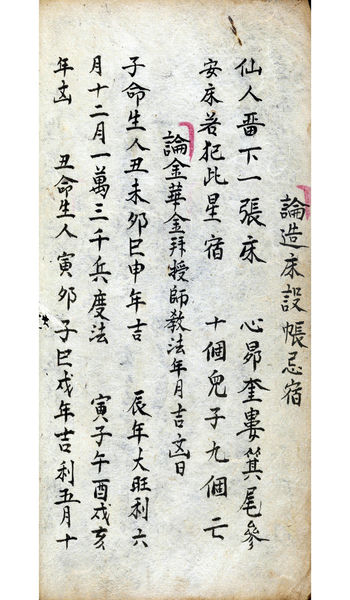 論造床設帳忌宿
仙人畱下一張床 心昴奎婁箕尾參
安床若犯此星宿 十個兒子九個亡
論金華金拜授師教法年月吉凶日
子命生人丑未夘巳申年吉 辰年大旺利六
月十二月一萬三千兵度法 寅子午酉戌亥
年凶 丑命生人寅夘子巳戌年吉利五月十